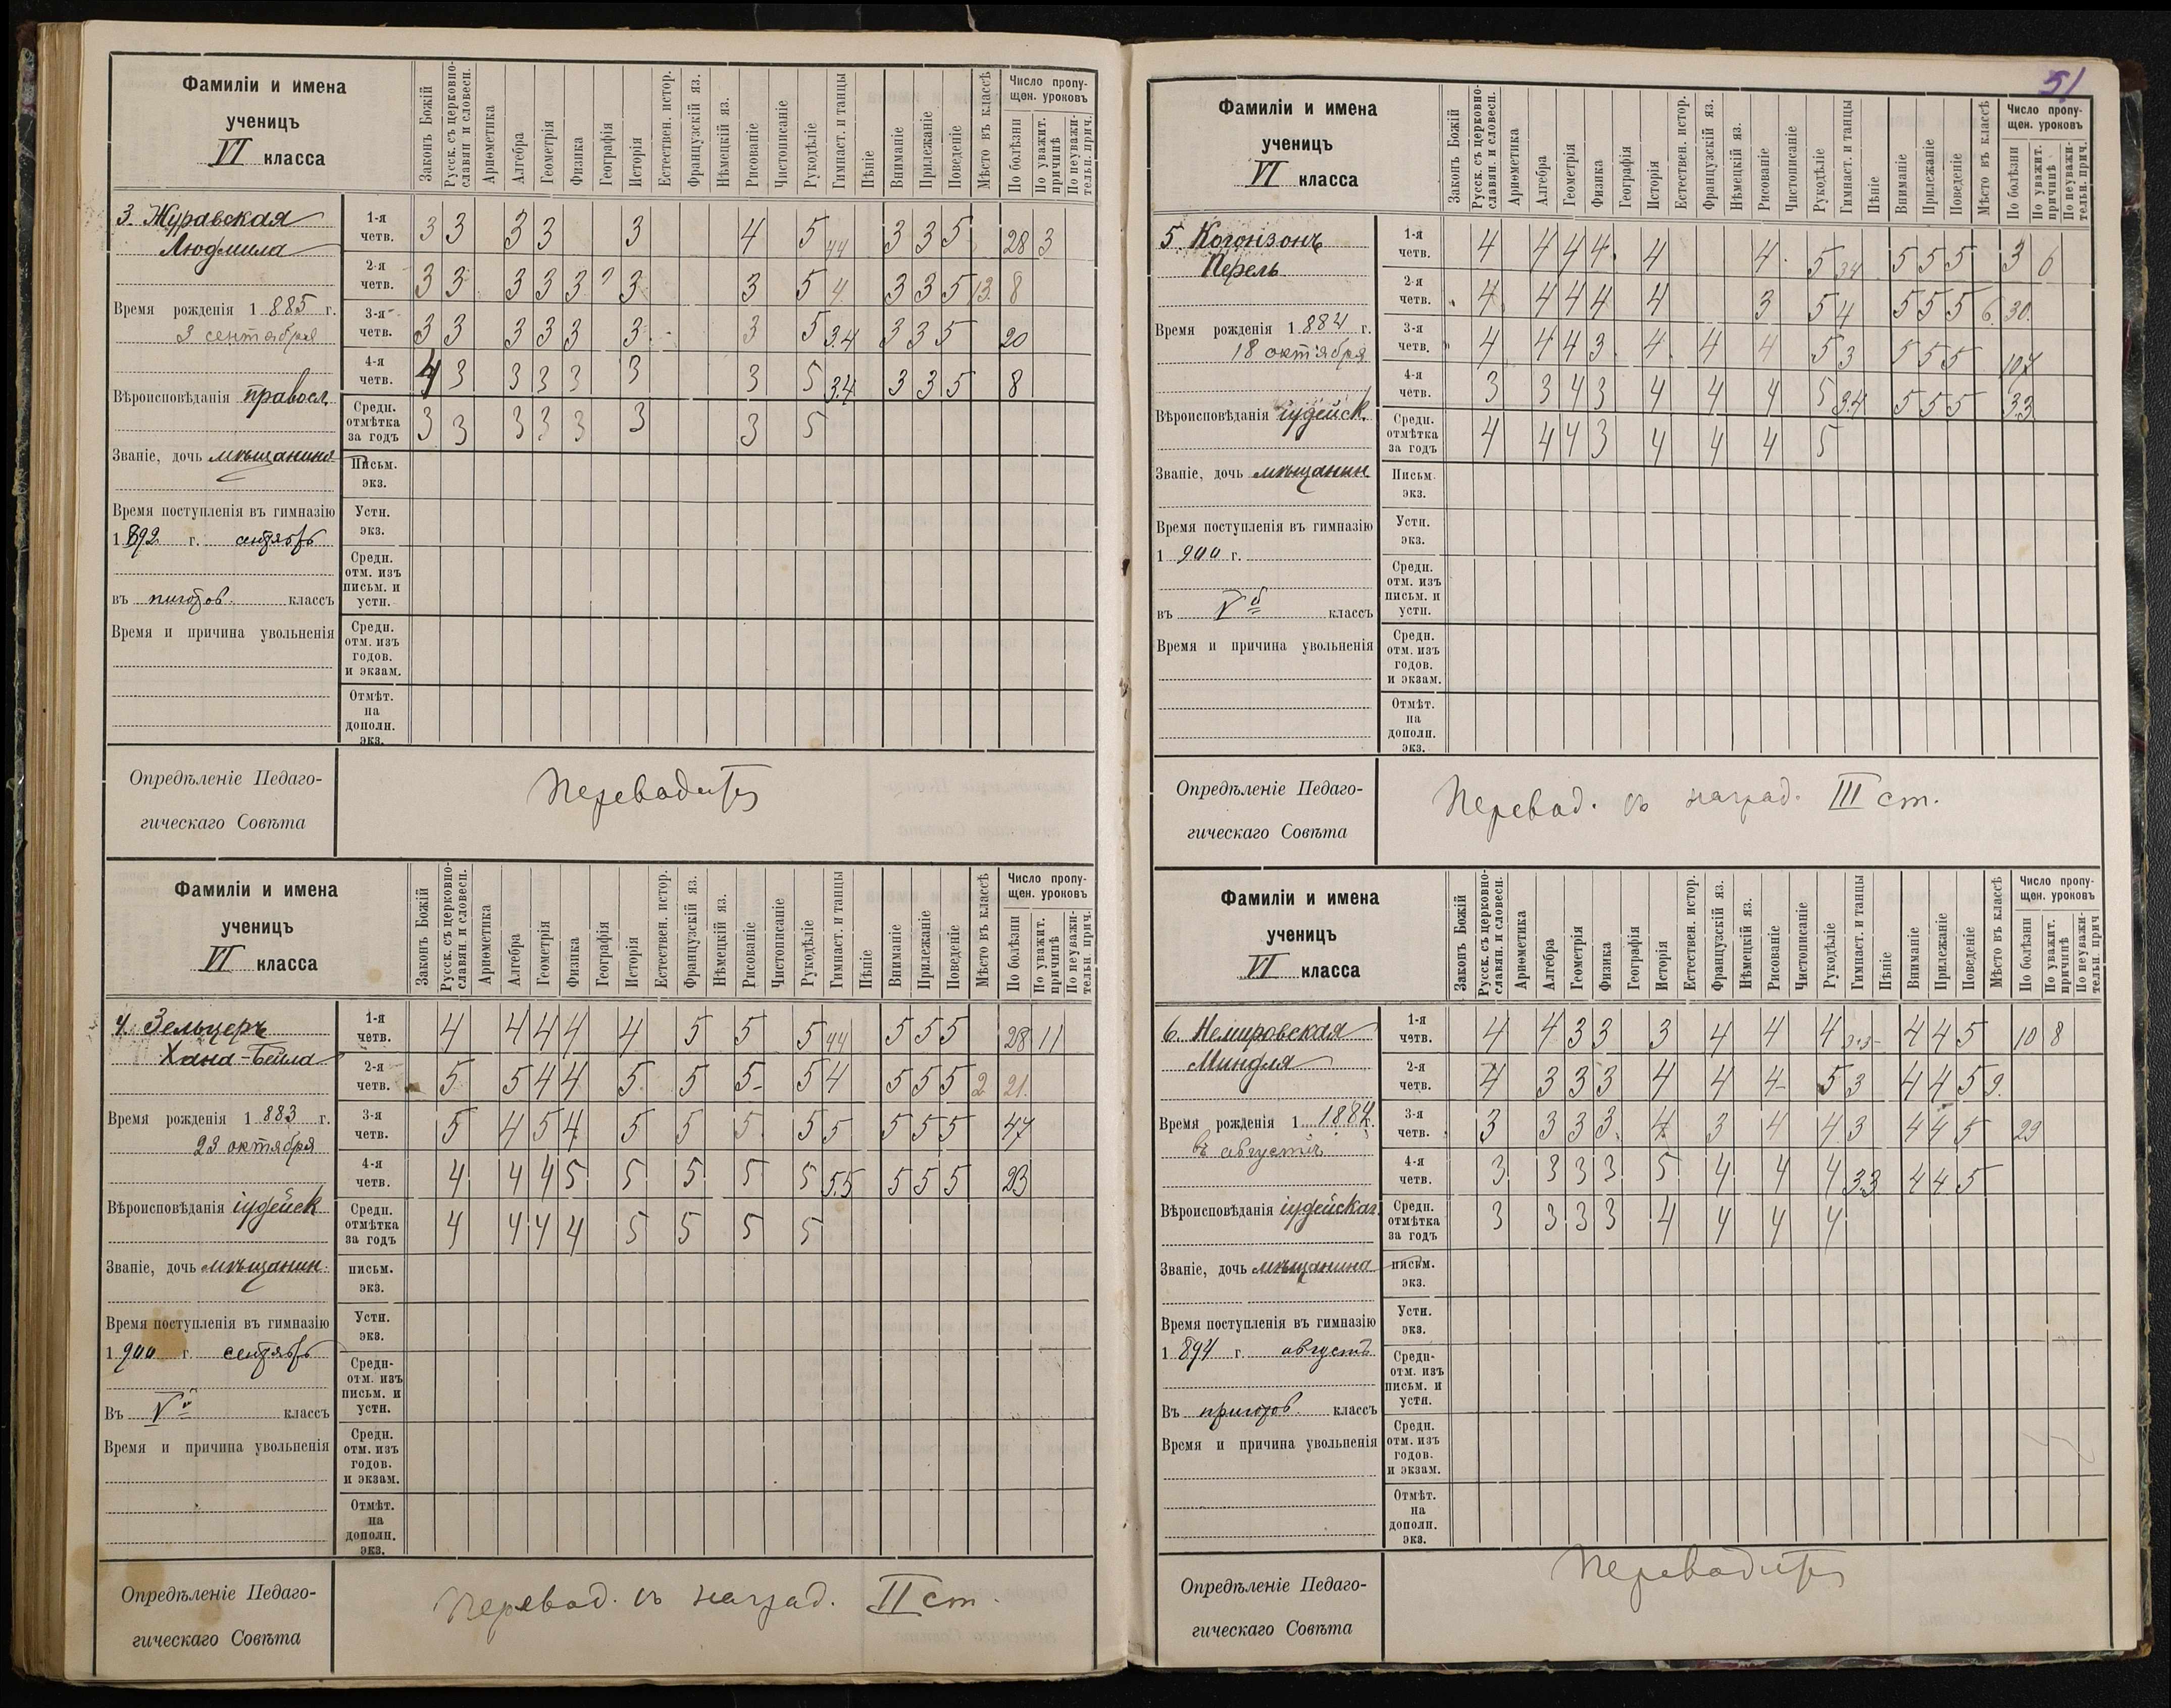 Фамиліи и имена
ученицъ
VI класса
Законъ Божій
Русск. съ церковно-
славян и словесн.
Ариѳметика
Алгебра
Геометрія
Физика
Географія
Исторія
Естествен. истор.
Французскій яз.
Нѣмецкій яз.
Рисованіе
Чистописаніе
Рукодѣліе
Гимнаст. и танцы
Пѣніе
Вниманіе
Прилежаніе
Поведеніе
Мѣсто въ классѣ
Число пропу-
щен. уроковъ
По болѣзни
По уважит.
причинѣ
По неуважи-
тельн. прич.
3. Журавская
Людмила
Время рожденія 1885 г.
3 сентября
Вѣроисповѣданія правосл.
Званіе, дочь мѣщанина
Время поступленія въ гимназію
1892 г. сентябрь
въ классъ
Время и причина увольненія
1-я четв. 3 3 3 3 3 4 5 44 3 3 5 28 3
2-я четв. 3 3 3 3 3 ? 3 3 5 4 3 3 5 13 8
3-я четв. 3 3 3 3 3 3 3 5 3.4 3 3 5 20
4-я четв. 4 3 3 3 3 3 3 5 3.4 3 3 5 8
Средн. отмѣтка за годъ 3 3 3 3 3 3 3 5
Письм. экз.
Устн. экз.
Средн. отм. изъ письм. и устн.
Средн. отм. изъ годов. и экзам.
Отмѣт. на дополн. экз.
Опредѣленіе Педаго-
гическаго Совѣта
Переводится
Фамиліи и имена
ученицъ
VI класса
Законъ Божій
Русск. съ церковно-
славян. и словесн.
Ариѳметика
Алгебра
Геометрія
Физика
Географія
Исторія
Естествен. истор.
Французскій яз.
Нѣмецкій яз.
Рисованіе
Чистописаніе
Рукодѣліе
Гимнаст. и танцы
Пѣніе
Вниманіе
Прилежаніе
Поведеніе
Мѣсто въ классѣ
Число пропу-
щен. уроковъ
По болѣзни
По уважит.
причинѣ
По неуважи-
тельн. прич.
4. Зельцеръ
Хана-Бейла
Время рожденія 1883 г.
23 октября
Вѣроисповѣданія іудейск
Званіе, дочь мѣщанин.
Время поступленія въ гимназію
1900 г. сентябрь
Въ V й классъ
Время и причина увольненія
1-я четв. 4 4 4 4 4 5 5 5 44 5 5 5 28 11
2-я четв. 5 5 4 4 5 5 5 5 4 5 5 5 2 21.
3-я четв. 5 4 5 4 5 5 5 5 5 5 5 5 47
4-я четв. 4 4 4 5 5 5 5 5 5.5 5 5 5 23
Средн. отмѣтка за годъ 4 4 4 4 5 5 5 5
письм. экз.
Устн. экз.
Средн- отм. изъ письм. и устн.
Средн. отм. изъ годов. и экзам.
Отмѣт. на дополн. экз.
Опредѣленіе Педаго-
гическаго Совѣта
Перевод. съ наград. II ст.
51
Фамиліи и имена
ученицъ
VI класса
Законъ Божій
Русск. съ церковно-
славян. и словесн.
Ариѳметика
Алгебра
Геометрія
Физика
Географія
Исторія
Естествен. истор.
Французскій яз.
Нѣмецкій яз.
Рисованіе
Чистописаніе
Рукодѣліе
Гимнаст. и танцы
Пѣніе
Вниманіе
Прилежаніе
Поведеніе
Мѣсто въ классѣ
Число пропу-
щен. уроковъ
По болѣзни
По уважит.
причинѣ
По неуважи-
тельн. прич.
5. Когонзонъ
Перель
Время рожденія 1884 г.
18 октября
Вѣроисповѣданія іудейск.
Званіе, дочь мѣщанин
Время поступленія въ гимназію
1900 г.
въ V й классъ
Время и причина увольненія
1-я четв. 4 4 4 4 4 4 5 34 5 5 5 3 6
2-я четв. 4 4 4 4 4 3 5 4 5 5 5 6 30.
3-я четв. 4 4 4 3 4 4 4 5 3 5 5 5 107
4-я четв. 3 3 4 3 4 4 4 5 3.4 5 5 5 33
Средн. отмѣтка за годъ 4 4 4 3 4 4 4 5
Письм. экз.
Устн. экз.
Средн. отм. изъ письм. и устн.
Средн. отм. изъ годов. и экзам.
Отмѣт. на дополн. экз.
Опредѣленіе Педаго-
гическаго Совѣта
Перевод. съ наград. III ст.
Фамиліи и имена
ученицъ
VI класса
Законъ Божій
Русск. съ церковно-
славян. и словесн.
Ариѳметика
Алгебра
Геометрія
Физика
Географія
Исторія
Естествен. истор.
Французскій яз.
Нѣмецкій яз.
Рисованіе
Чистописаніе
Рукодѣліе
Гимнаст. и танцы
Пѣніе
Вниманіе
Прилежаніе
Поведеніе
Мѣсто въ классѣ
Число пропу-
щен. уроковъ
По болѣзни
По уважит.
причинѣ
По неуважи-
тельн. прич
6. Немировская
Миндля
Время рожденія 1 1884.
въ августѣ
Вѣроисповѣданія іудейскаг.
Званіе, дочь мѣщанина
Время поступленія въ гимназію
1894 г. августъ
Въ пригото́в. классъ
Время и причина увольненія
1-я четв. 4 4 3 3 3 4 4 4 4 4 5 10 8
2-я четв. 4 3 3 3 4 4 4 5 3 4 4 5 9.
3-я четв. 3 3 3 3 4 3 4 4 3 4 4 5 29
4-я четв. 3 3 3 3 5 4 4 4 3.3 4 4 5
Средн. отмѣтка за годъ 3 3 3 3 4 4 4 4
письм. экз.
Устн. экз.
Средн- отм. изъ письм. и устн.
Средн. отм. изъ годов. и экзам.
Отмѣт. на дополн. экз.
Опредѣленіе Педаго-
гическаго Совѣта
Переводится